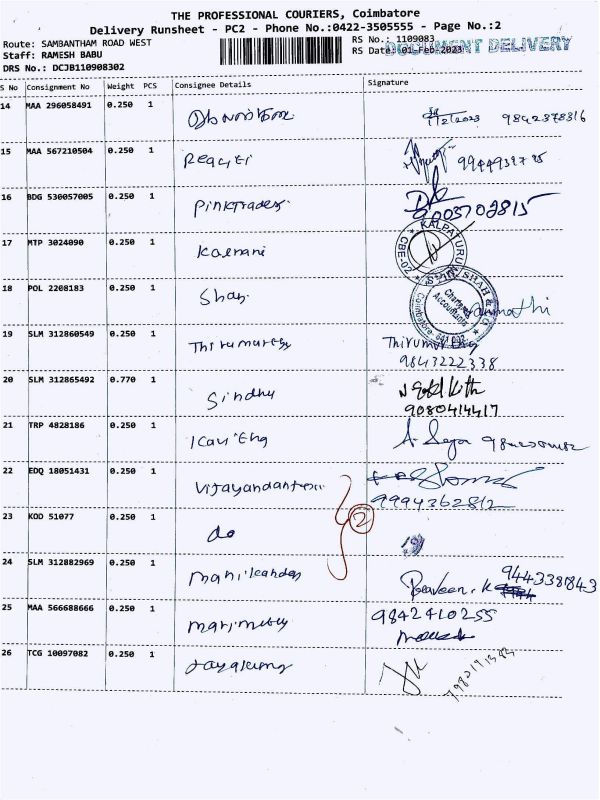 THE PROFESSIONAL COURIERS, Coimbatore
Delivery Runsheet - PC2 - Phone No.:0422-3505555 - Page No.:2
Route: SAMBANTHAM ROAD WEST
RS No.: 1109083
Staff: RAMESH BABU
RS Date: 01-Feb-2023
DOCUMENT DELIVERY
DRS No.: DCJB110908302
S No Consignment No Weight PCS Consignee Details Signature
14 MAA 296058491 0.250 1 9842378316
15 MAA 567210504 0.250 1
16 BDG 530057005 0.250 1 Pinktraders 9003702815
17 MTP 3024090 0.250 1 Kalmani
KALPATURU
CBE-02
18 POL 2208183 0.250 1 Shah
SHAH & CO
Chartered Accountants
Coimbatore
19 SLM 312860549 0.250 1 Thirumurthy
9843222338
20 SLM 312865492 0.770 1 Sindhu
9080414417
21 TRP 4828186 0.250 1
22 EDQ 18051431 0.250 1
9994362812
2
23 KOD 51077 0.250 1 do
24 SLM 312882969 0.250 1 manikandan Praveen.K
25 MAA 566688666 0.250 1 9842410255
26 TCG 10097082 0.250 1